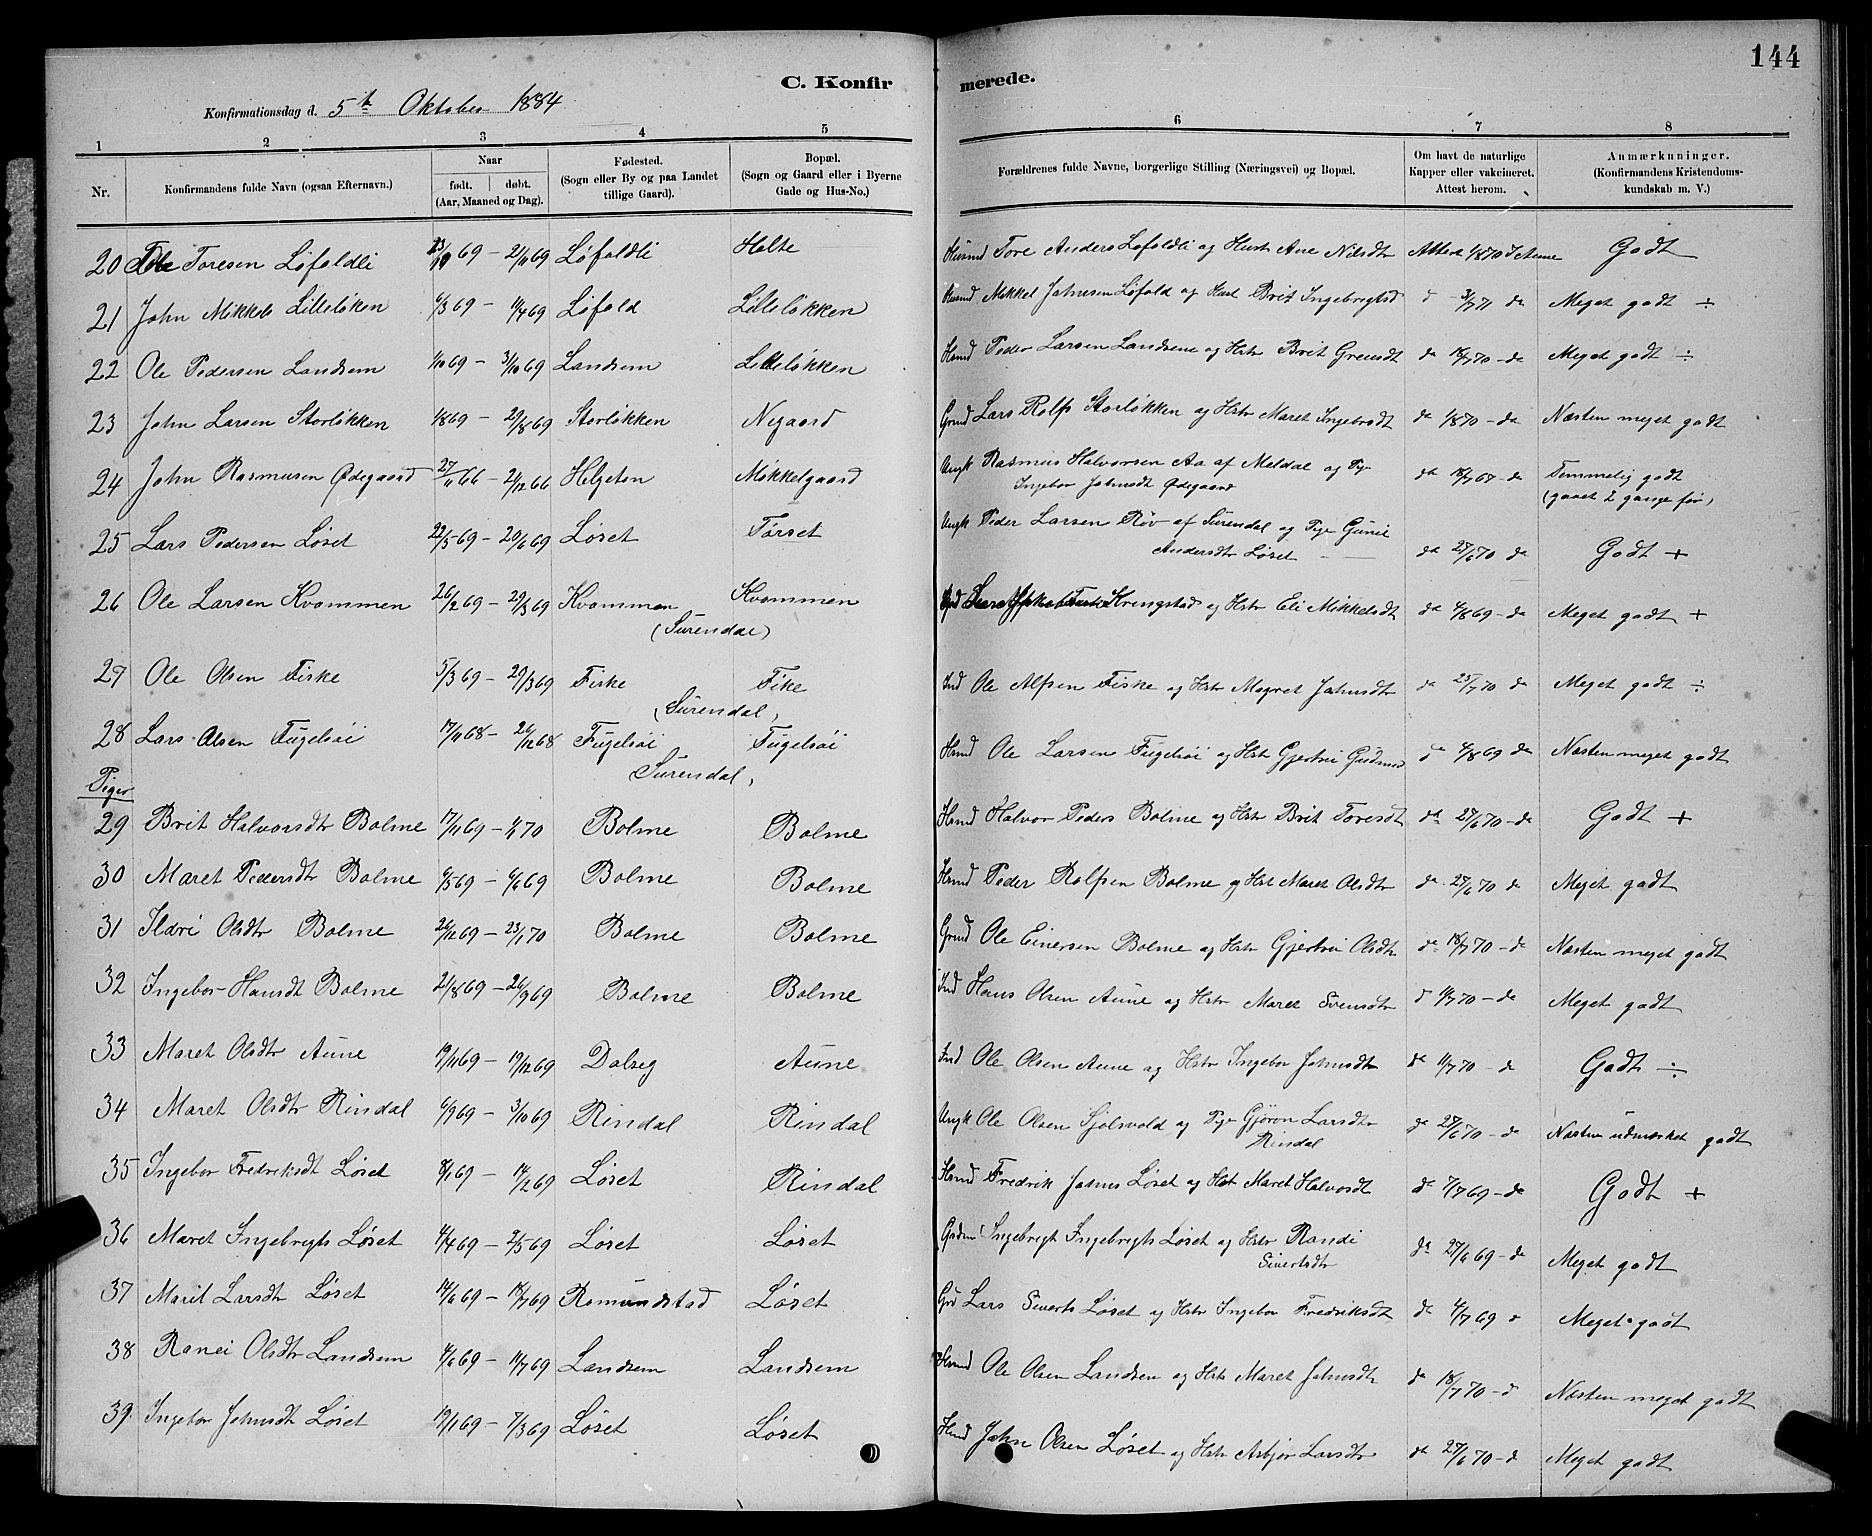 144
C. Konfirmerede.
Konfirmationsdag d. 5te Oktober 1884
1 2 3 4 5 6 7 8
Nr. Konfirmandens fulde Navn (ogsaa Efternavn.) Naar født. døbt. (Aar, Maaned og Dag). Fødested. (Sogn eller By og paa Landet tillige Gaard). Bopæl. (Sogn og Gaard eller i Byerne Gade og Hus-No.) Forældrenes fulde Navne, borgerlige Stilling (Næringsvei) og Bopæl. Om havt de naturlige Kapper eller vakcineret. Attest herom. Anmærkninger. (Konfirmandens Kristendomskundskab m. V.)
20 Toresen Løfaldli 69 – 2/11 69 Løfaldli Holte Husmd Tore Anders Løfaldli og Hust Ane Nilsdtr 1/8 70 Godt
21 John Mikkels Lilleløkken 6/3 69 – 11/4 69 Løfald Lilleløkken Husmd Mikkel Johnsen Løfald og Hust Brit Ingebrigtsd d 3/7 71 da Meget godt ÷
22 Ole Pedersen Landsem 1/10 69 – 3/10 69 Landsem Lilleløkken Husmd Peder Larsen Landsem og Hstr Brit da 18/7 70 – da Meget godt ÷
23 John Larsen Storløkken 1/8 69 – 29/8 69 Storløkken Negaard Grmd Lars Rolfs Storløkken og Hstr Maret Ingebrsdt da 1/8 70 – da Næsten meget godt
24 John Rasmusen Ødegaard 27/11 66 – 26/12 66 Helgeton Mikkelgaard Ungk Rasmus Halvorsen Aa af Meldal og Pge
Ingebor Johnsdt Ødegaard da 18/7 68 – da Temmelig godt
(gaaet 2 gange før)
25 Lars Pedersen Løset 22/5 69 – 20/6 69 Løset Tørset Ungk Peder Larsen Røv af Surendal og Pge Gunil
Andersdtr Løset da 27/6 70 da Godt +
26 Ole Larsen Kvammen 26/2 69 – 29/3 69 Kvammen Kvammen Kringstad og Hstr Eli Mikkelsdt da 4/8 69 – da Meget godt +
(Surendal)
27 Ole Olsen Fiske 5/3 69 – 29/3 69 Fiske Fike Ind Ole Alfsen Fiske og Hstr Magret Johnsdtr da 25/7 70 da Meget godt ÷
(Surendal,
28 Lars Olsen Fugelsøi 17/11 68 – 26/12 68 Fugelsøi Fugelsøi Hsmd Ole Larsen Fugelsøi og Hstr Gjertru d 4/8 69 da Næsten meget godt
Surendal,
Piger
29 Brit Halvorsdtr Bolme 17/11 69 – 1/1 70 Bolme Bolme Hsmd Halvor Peders Bolme og Hstr Brit Toresdt da 27/6 70 – da Godt +
30 Maret Pedersdtr Bolme 6/5 69 – 6/6 69 Bolme Bolme Hsmd Peder Rolfsen Bolme og Hst Maret Olsdtr da 27/6 70 da Meget godt
31 Ildri Olsdtr Bolme 26/12 69 – 23/1 70 Bolme Bolme Grmd Ole Einersen Bolme og Hstr Gjertru Olsdtr da 18/7 70 – da Næsten meget godt
32 Ingebor Hansdt Bolme 21/8 69 – 26/9 69 Bolme Bolme Ind Hans Olsen Aune og Hstr Maret Svensdtr d 11/7 70 – da Meget godt
33 Maret Olsdtr Aune 19/11 69 – 19/12 69 Dalseg Aune Ind Ole Olsen Aune og Hstr Ingebor Johnsdtr da 11/7 70 – da Godt ÷
34 Maret Olsdtr Rindal 6/9 69 – 3/10 69 Rindal Rindal Ungk Ole Olsen Sjølsvold og Pge Gjøron Larsdtr
Rindal da 27/6 70 – da Næsten udmærket godt
35 Ingebor Fredriksdt Løset 8/1 69 – 14/2 69 Løset Rindal Hsmd Fredrik Johns Løset og Hst Maret Halvorsdt da 7/7 69 – da Godt +
36 Maret Ingebregts Løset 4/4 69 – 2/5 69 Løset Løset Ingebrigt Ingebrigts Løset og Hstr Randi
Sivertsdtr da 27/6 69 – da Meget godt
37 Marit Larsdtr Løset 14/6 69 – 18/7 69 Romundstad Løset Grd Lars Siverts Løset og Hstr Ingebor Fredriksdt da 4/7 69 d Meget godt
38 Ranei Olsdtr Landsem 4/6 69 – 11/7 69 Landsem Landsem Hsmd Ole Olsen Landsem og Hstr Maret Johnsdtr da 18/7 70 – d Næsten meget godt
39 Ingebor Johnsdt Løset 19/1 69 – 7/3 69 Løset Løset Hsmd John Olsen Løset og Hstr Asbjør Larsdtr da 27/6 70 – d Meget godt